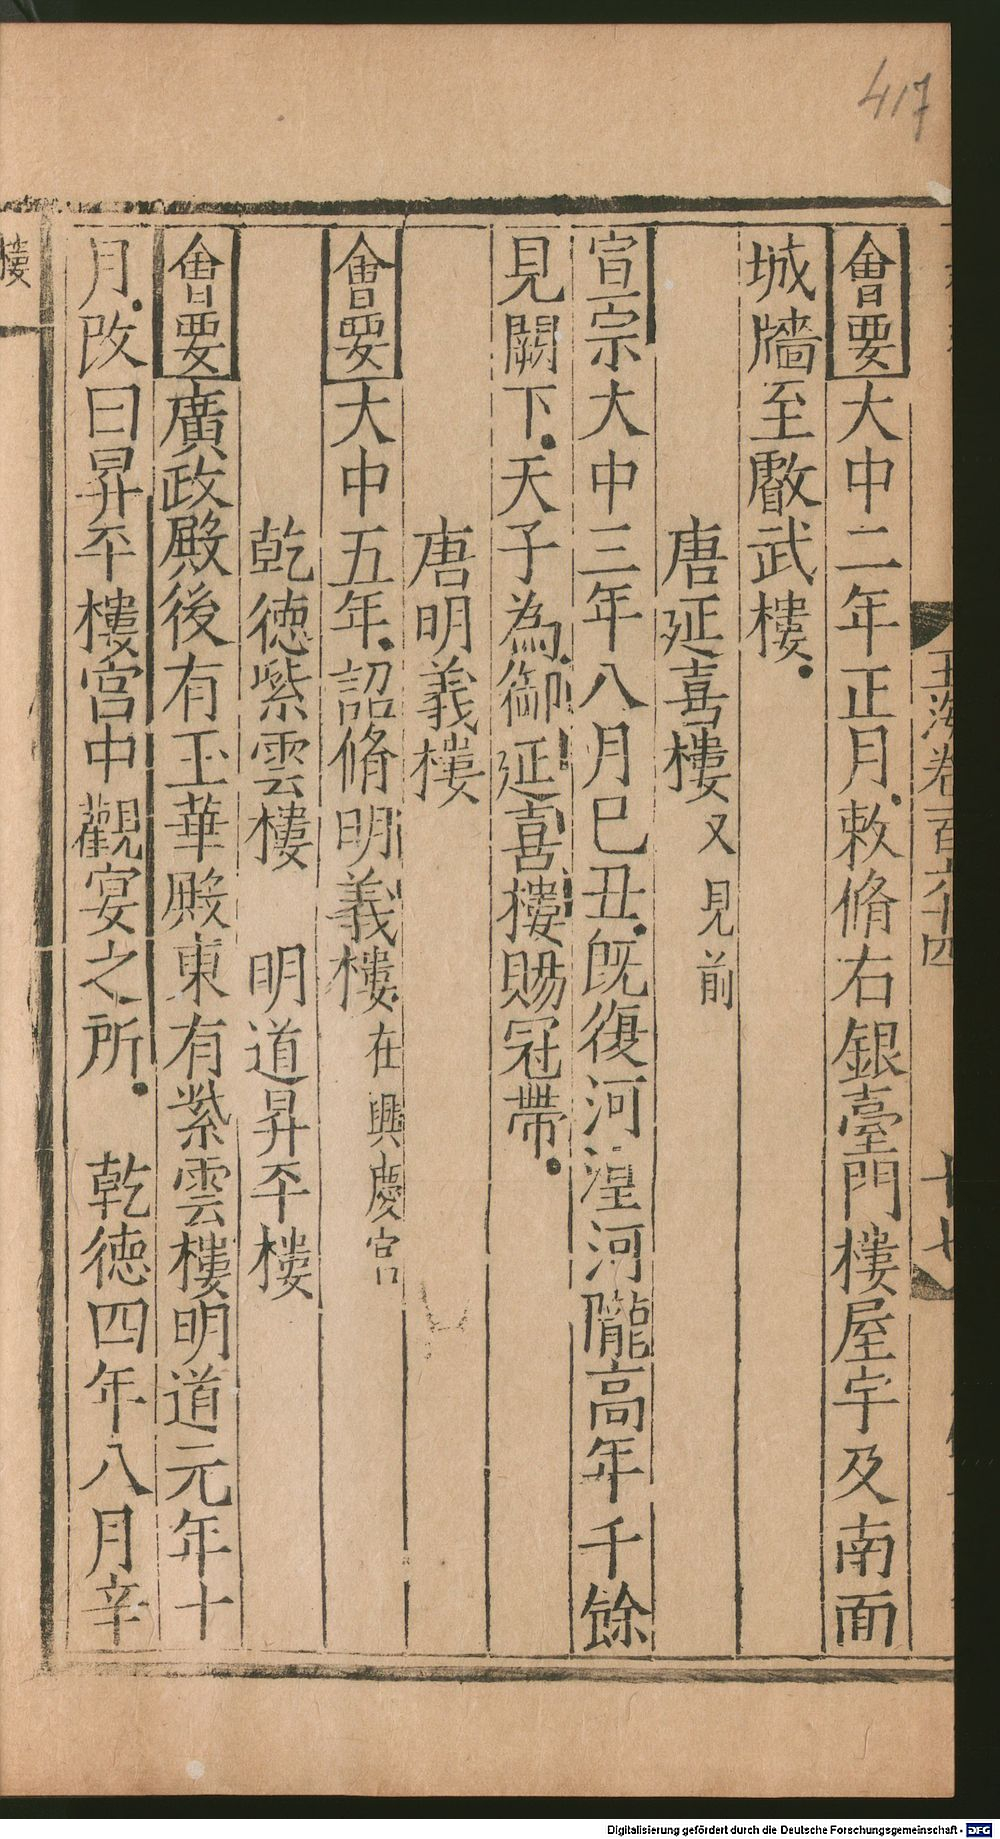 417
會要大中二年正月敕脩右銀臺門樓屋宇及南面
城牆至叡武樓
唐延喜樓又見前
宣宗大中三年八月巳丑既復河湟河隴高年千餘
見闕下天子為御延喜樓賜冠帶
唐明義樓
會要大中五年詔脩明義樓在興慶宮
乾德紫雲樓　明道昇平樓
會要廣政殿後有玉華殿東有紫雲樓明道元年十
月改曰昇平樓宮中觀宴之所　乾德四年八月辛
樓
玉海卷百六十四
十七
Digitalisierung gefördert durch die Deutsche Forschungsgemeinschaft - DFG